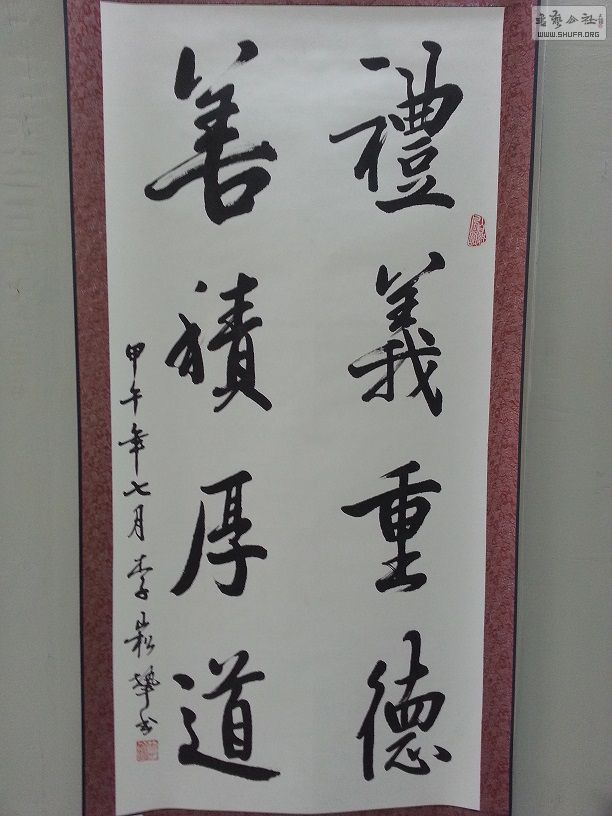 禮義重德
善積厚道
甲午年七月李崧峰书
書藝公社
WWW.SHUFA.ORG